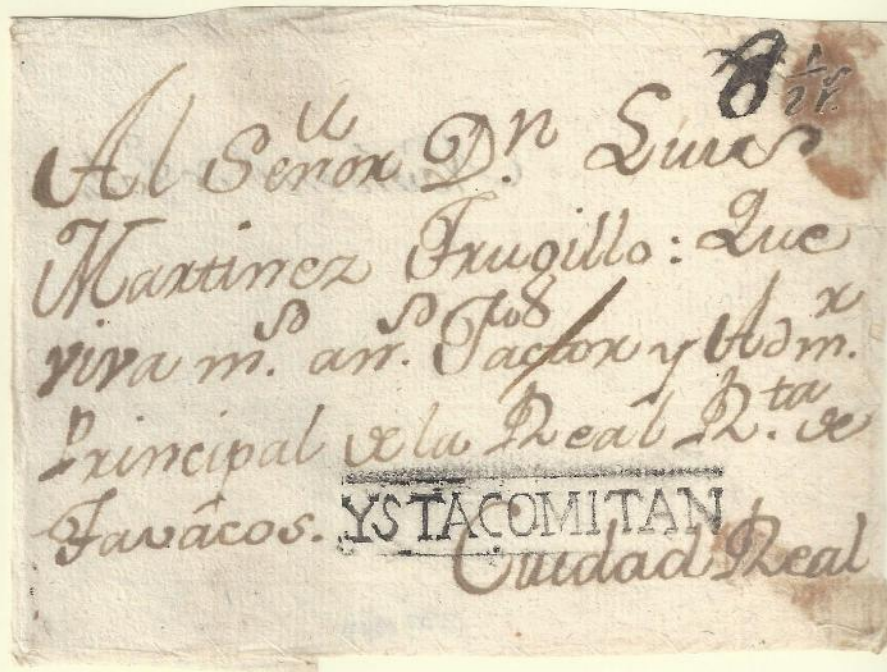 6 1/2 r.
Al Señor Dn. Luis
Martinez Trugillo: Que
viva ms. ans. Factor y Admr.
Principal de la Real Rta. de
Tavácos. YSTACOMITAN
Ciudad Real